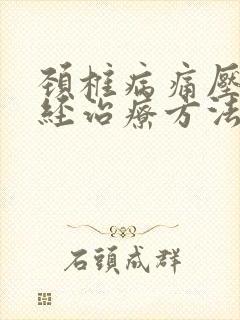 頚椎病痛壓
経治療方法
石頭成群